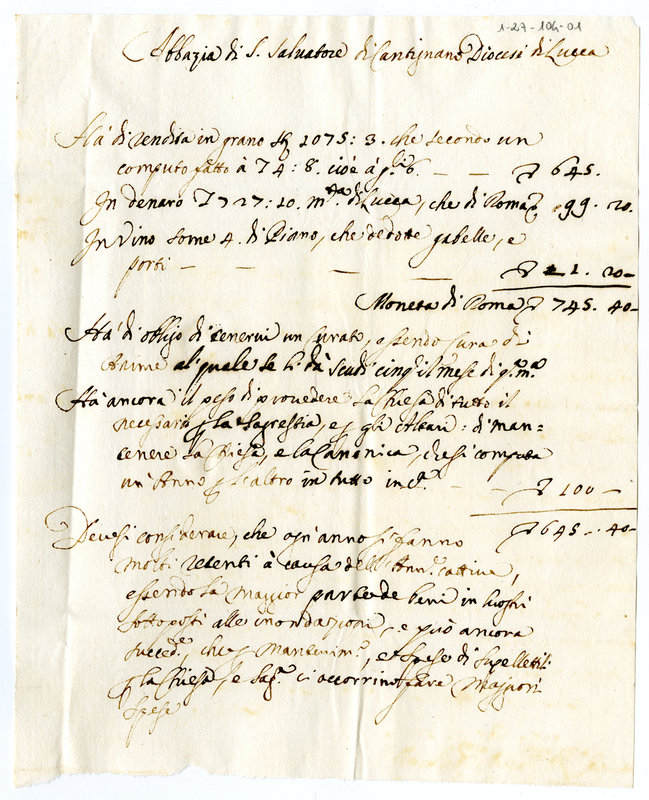 1-27-104-01
Abbazia di S. Salvatore di Cantignano Diocesi di Lucca
Hà di rendita in grano 1075: 3. che secondo un
computo fatto à 74: 8. cioè à 6. — — 645.
In denaro 727: 10. m.ta di Lucca, che di Roma 99. 20.
In Vino some 4. di Piano, che dedotte gabelle, e
porti — — — — 1. 20—
Moneta di Roma 745. 40—
Hà di obligo di tenervi un Curato, essendo Cura di
Anime al quale se li dà scudi cinq. il mese di
Hà ancora il peso di provedere la Chiesa di tutto il
necessario la Sagrestia, e gli Altari: di man=
tenere la Chiesa, e la Canonica, che si computa
un'Anno l'altro in tutto — — 100 —
645. 40—
Devesi considerare, che ogn'anno si fanno
molti retenti à causa dell'Ann.e cattive,
essendo la maggior parte de beni in luoghi
sottoposti alle inondazioni, e può ancora
succed.e, che Mantenim.o, et spese di supellettili
la Chiesa, e Sag.a ci occorrino fare maggiori
spese